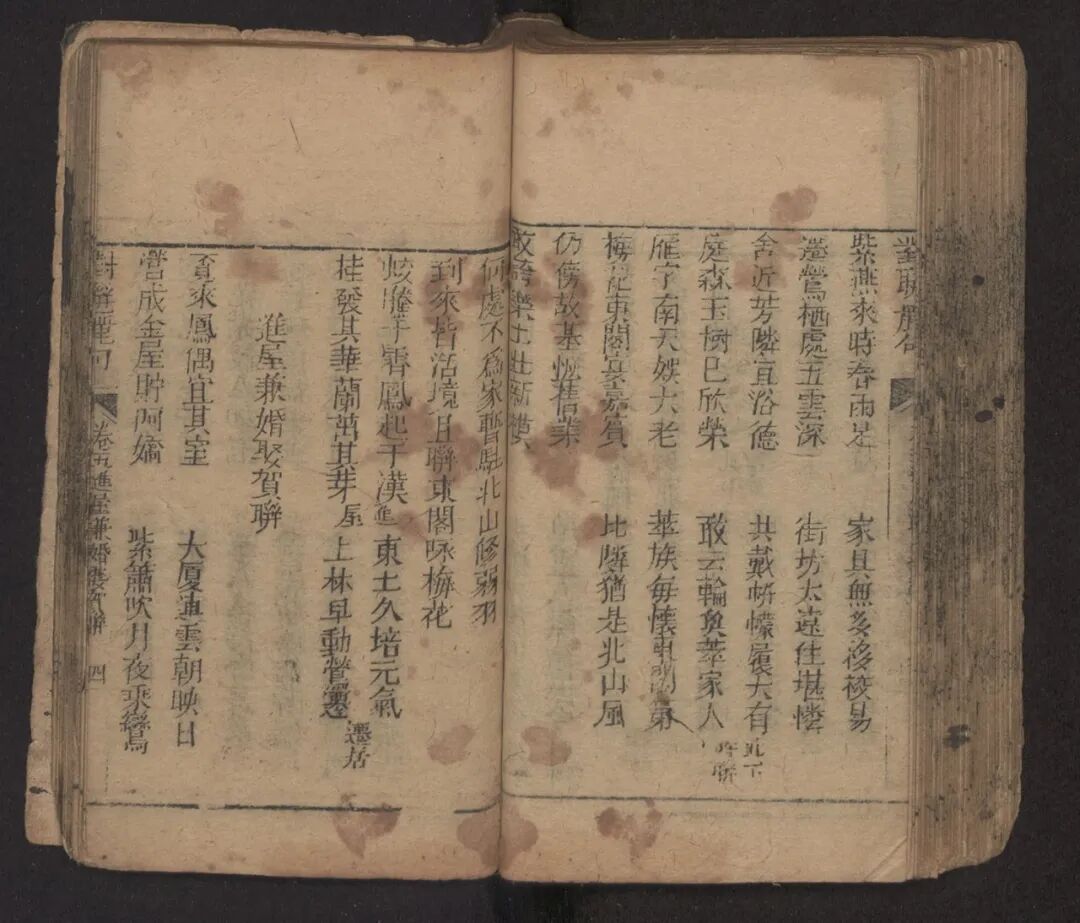 紫燕來時春雨足 家具無多移棧易
遷鶯栖處五雲深 街坊太遠住堪憐
舍近芳隣宜浴德 共戴帡幪履大有
庭森玉樹已欣榮 敢云輪奐萃家人
雁字南天娛大老 萃族每懷東閣
梅花東閣宴嘉賓 比隣猶是北山風
仍傍故基恢舊業
新
何處不爲家暫駐北山修弱羽
到來皆活境且聯東閣咏梅花
蛟騰乎霄鳳起于漢 進 東土久培元氣
桂發其華蘭萬其芽 屋 上林早動鶯遷 遷居
進屋兼婚娶賀聯
賚來鳳偶宜其室 大厦連雲朝映日
營成金屋貯阿嬌 紫簫吹月夜乘鸞
卷五進屋兼婚娶賀聯 四